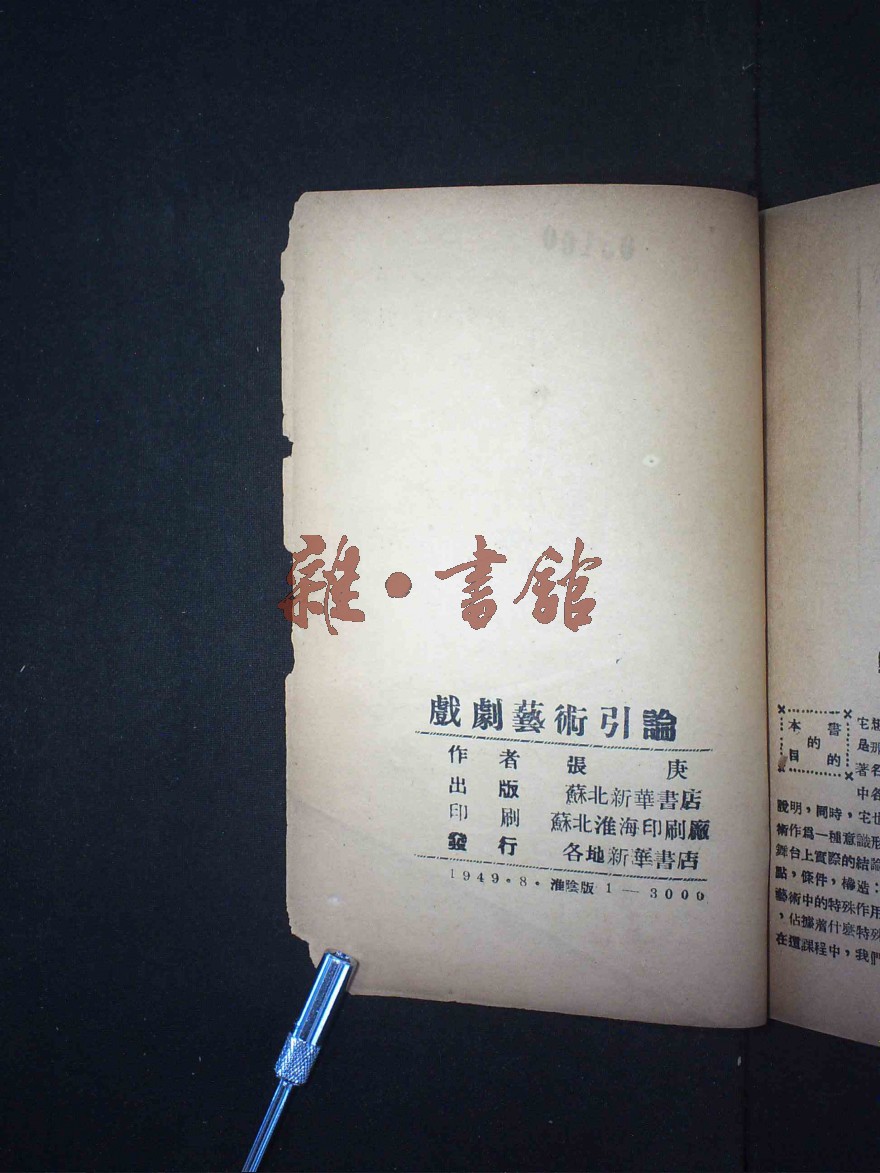 雜·書舘
戲劇藝術引論
作者 張庚
出版 蘇北新華書店
印刷 蘇北淮海印刷廠
發行 各地新華書店
1949.8.淮陰版 1—3000
本書
的
目的
宅想
是那
著名
中各
說明,同時,宅也
術作爲一種意識形
舞台上實際的結論
點,條件,構造:
藝術中的特殊作用
,佔據着什麽特殊
在這課程中,我們